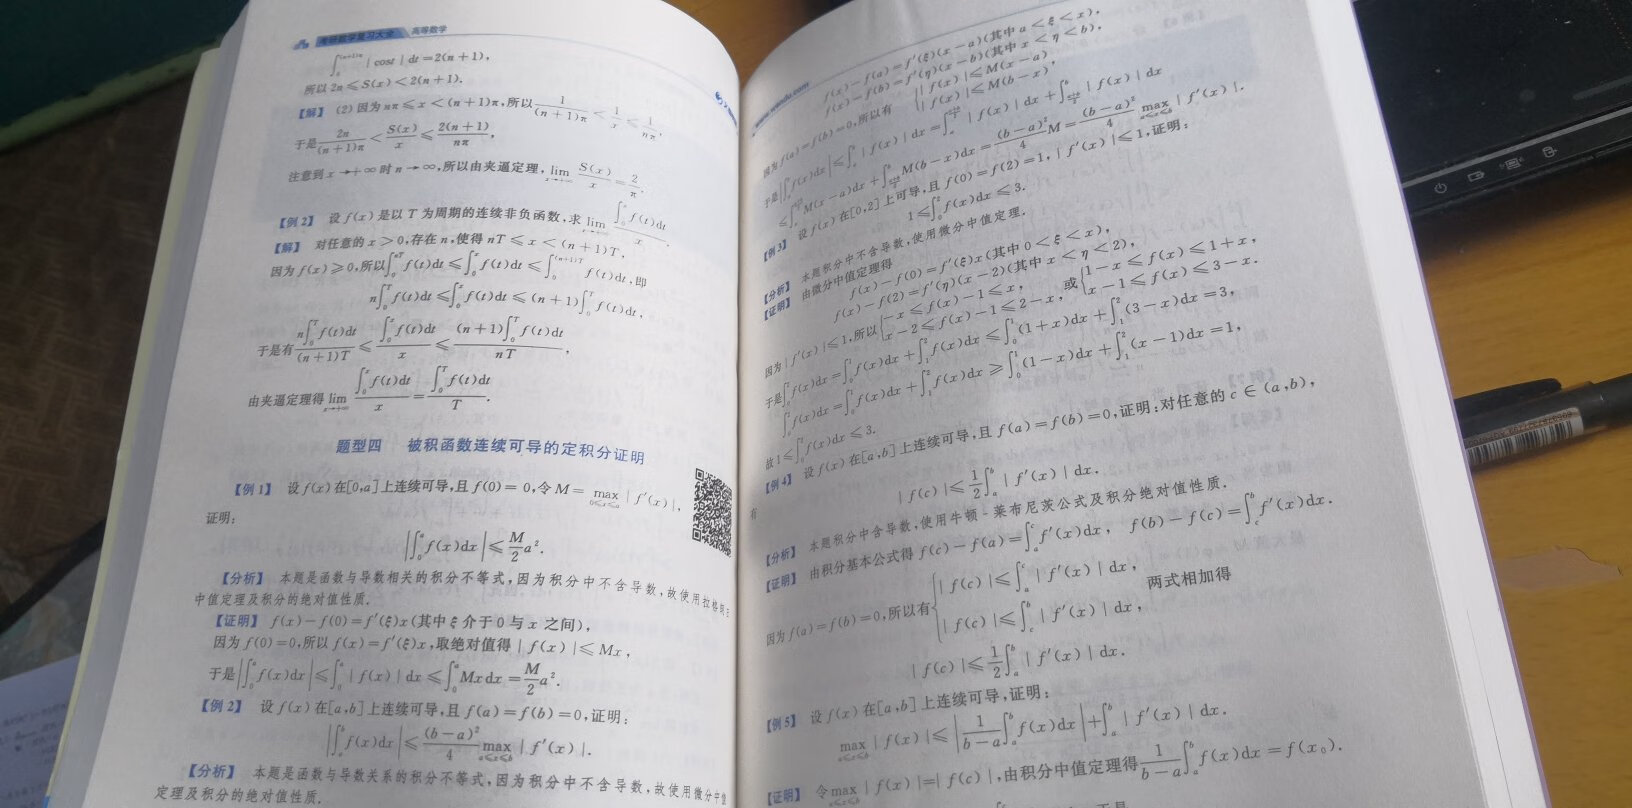 考研数学复习大全 高等数学
∫₀^{(n+1)π} | cost | dt = 2(n+1),
所以 2n ≤ S(x) < 2(n+1).
【解】 (2) 因为 nπ ≤ x < (n+1)π, 所以 1/((n+1)π) < 1/x ≤ 1/(nπ),
于是 2n/((n+1)π) < S(x)/x ≤ 2(n+1)/(nπ),
注意到 x → +∞ 时 n → ∞, 所以由夹逼定理, lim_{x→+∞} S(x)/x = 2/π.
【例 2】 设 f(x) 是以 T 为周期的连续非负函数, 求 lim_{x→+∞} (∫₀^x f(t)dt)/x.
【解】 对任意的 x > 0, 存在 n, 使得 nT ≤ x < (n+1)T,
因为 f(x) ≥ 0, 所以 ∫₀^{nT} f(t)dt ≤ ∫₀^x f(t)dt ≤ ∫₀^{(n+1)T} f(t)dt, 即
n∫₀^T f(t)dt ≤ ∫₀^x f(t)dt ≤ (n+1)∫₀^T f(t)dt,
于是有 (n∫₀^T f(t)dt)/((n+1)T) ≤ (∫₀^x f(t)dt)/x ≤ ((n+1)∫₀^T f(t)dt)/(nT),
由夹逼定理得 lim_{x→+∞} (∫₀^x f(t)dt)/x = (∫₀^T f(t)dt)/T.
题型四 被积函数连续可导的定积分证明
【例 1】 设 f(x) 在 [0,a] 上连续可导, 且 f(0) = 0, 令 M = max_{0≤x≤a} | f'(x) |,
证明:
|∫₀^a f(x)dx| ≤ (M/2)a².
【分析】 本题是函数与导数相关的积分不等式, 因为积分中不含导数, 故使用拉格
中值定理及积分的绝对值性质.
【证明】 f(x) − f(0) = f'(ξ)x (其中 ξ 介于 0 与 x 之间),
因为 f(0) = 0, 所以 f(x) = f'(ξ)x, 取绝对值得 | f(x) | ≤ Mx,
于是 |∫₀^a f(x)dx| ≤ ∫₀^a | f(x) | dx ≤ ∫₀^a Mx dx = (M/2)a².
【例 2】 设 f(x) 在 [a,b] 上连续可导, 且 f(a) = f(b) = 0, 证明:
|∫ₐ^b f(x)dx| ≤ ((b−a)²/4) max_{a≤x≤b} | f'(x) |.
【分析】 本题是函数与导数关系的积分不等式, 因为积分中不含导数, 故使用微分中值
定理及积分的绝对值性质.
f(x) − f(a) = f'(ξ)(x−a) (其中 a < ξ < x),
f(x) − f(b) = f'(η)(x−b) (其中 x < η < b),
因为 f(a) = f(b) = 0, 所以有 { | f(x) | ≤ M(x−a), | f(x) | ≤ M(b−x),
于是 |∫ₐ^b f(x)dx| ≤ ∫ₐ^b | f(x) | dx = ∫ₐ^{(a+b)/2} | f(x) | dx + ∫_{(a+b)/2}^b | f(x) | dx
≤ ∫ₐ^{(a+b)/2} M(x−a)dx + ∫_{(a+b)/2}^b M(b−x)dx = ((b−a)²/4)M = ((b−a)²/4) max_{a≤x≤b} | f'(x) |.
【例 3】 设 f(x) 在 [0,2] 上可导, 且 f(0) = f(2) = 1, | f'(x) | ≤ 1, 证明:
1 ≤ ∫₀² f(x)dx ≤ 3.
【分析】 本题积分中不含导数, 使用微分中值定理.
【证明】 由微分中值定理得
f(x) − f(0) = f'(ξ)x (其中 0 < ξ < x),
f(x) − f(2) = f'(η)(x−2) (其中 x < η < 2),
因为 | f'(x) | ≤ 1, 所以 { −x ≤ f(x) − 1 ≤ x, x − 2 ≤ f(x) − 1 ≤ 2 − x, 或 { 1 − x ≤ f(x) ≤ 1 + x, x − 1 ≤ f(x) ≤ 3 − x.
于是 ∫₀² f(x)dx = ∫₀¹ f(x)dx + ∫₁² f(x)dx ≤ ∫₀¹ (1+x)dx + ∫₁² (3−x)dx = 3,
∫₀² f(x)dx = ∫₀¹ f(x)dx + ∫₁² f(x)dx ≥ ∫₀¹ (1−x)dx + ∫₁² (x−1)dx = 1,
故 1 ≤ ∫₀² f(x)dx ≤ 3.
【例 4】 设 f(x) 在 [a,b] 上连续可导, 且 f(a) = f(b) = 0, 证明: 对任意的 c ∈ (a,b),
有
| f(c) | ≤ (1/2)∫ₐ^b | f'(x) | dx.
【分析】 本题积分中含导数, 使用牛顿-莱布尼茨公式及积分绝对值性质.
【证明】 由积分基本公式得 f(c) − f(a) = ∫ₐ^c f'(x)dx, f(b) − f(c) = ∫_c^b f'(x)dx.
因为 f(a) = f(b) = 0, 所以有 { | f(c) | ≤ ∫ₐ^c | f'(x) | dx, | f(c) | ≤ ∫_c^b | f'(x) | dx, 两式相加得
| f(c) | ≤ (1/2)∫ₐ^b | f'(x) | dx.
【例 5】 设 f(x) 在 [a,b] 上连续可导, 证明:
max_{a≤x≤b} | f(x) | ≤ |(1/(b−a))∫ₐ^b f(x)dx| + ∫ₐ^b | f'(x) | dx.
【证明】 令 max_{a≤x≤b} | f(x) | = | f(c) |, 由积分中值定理得 (1/(b−a))∫ₐ^b f(x)dx = f(x₀).